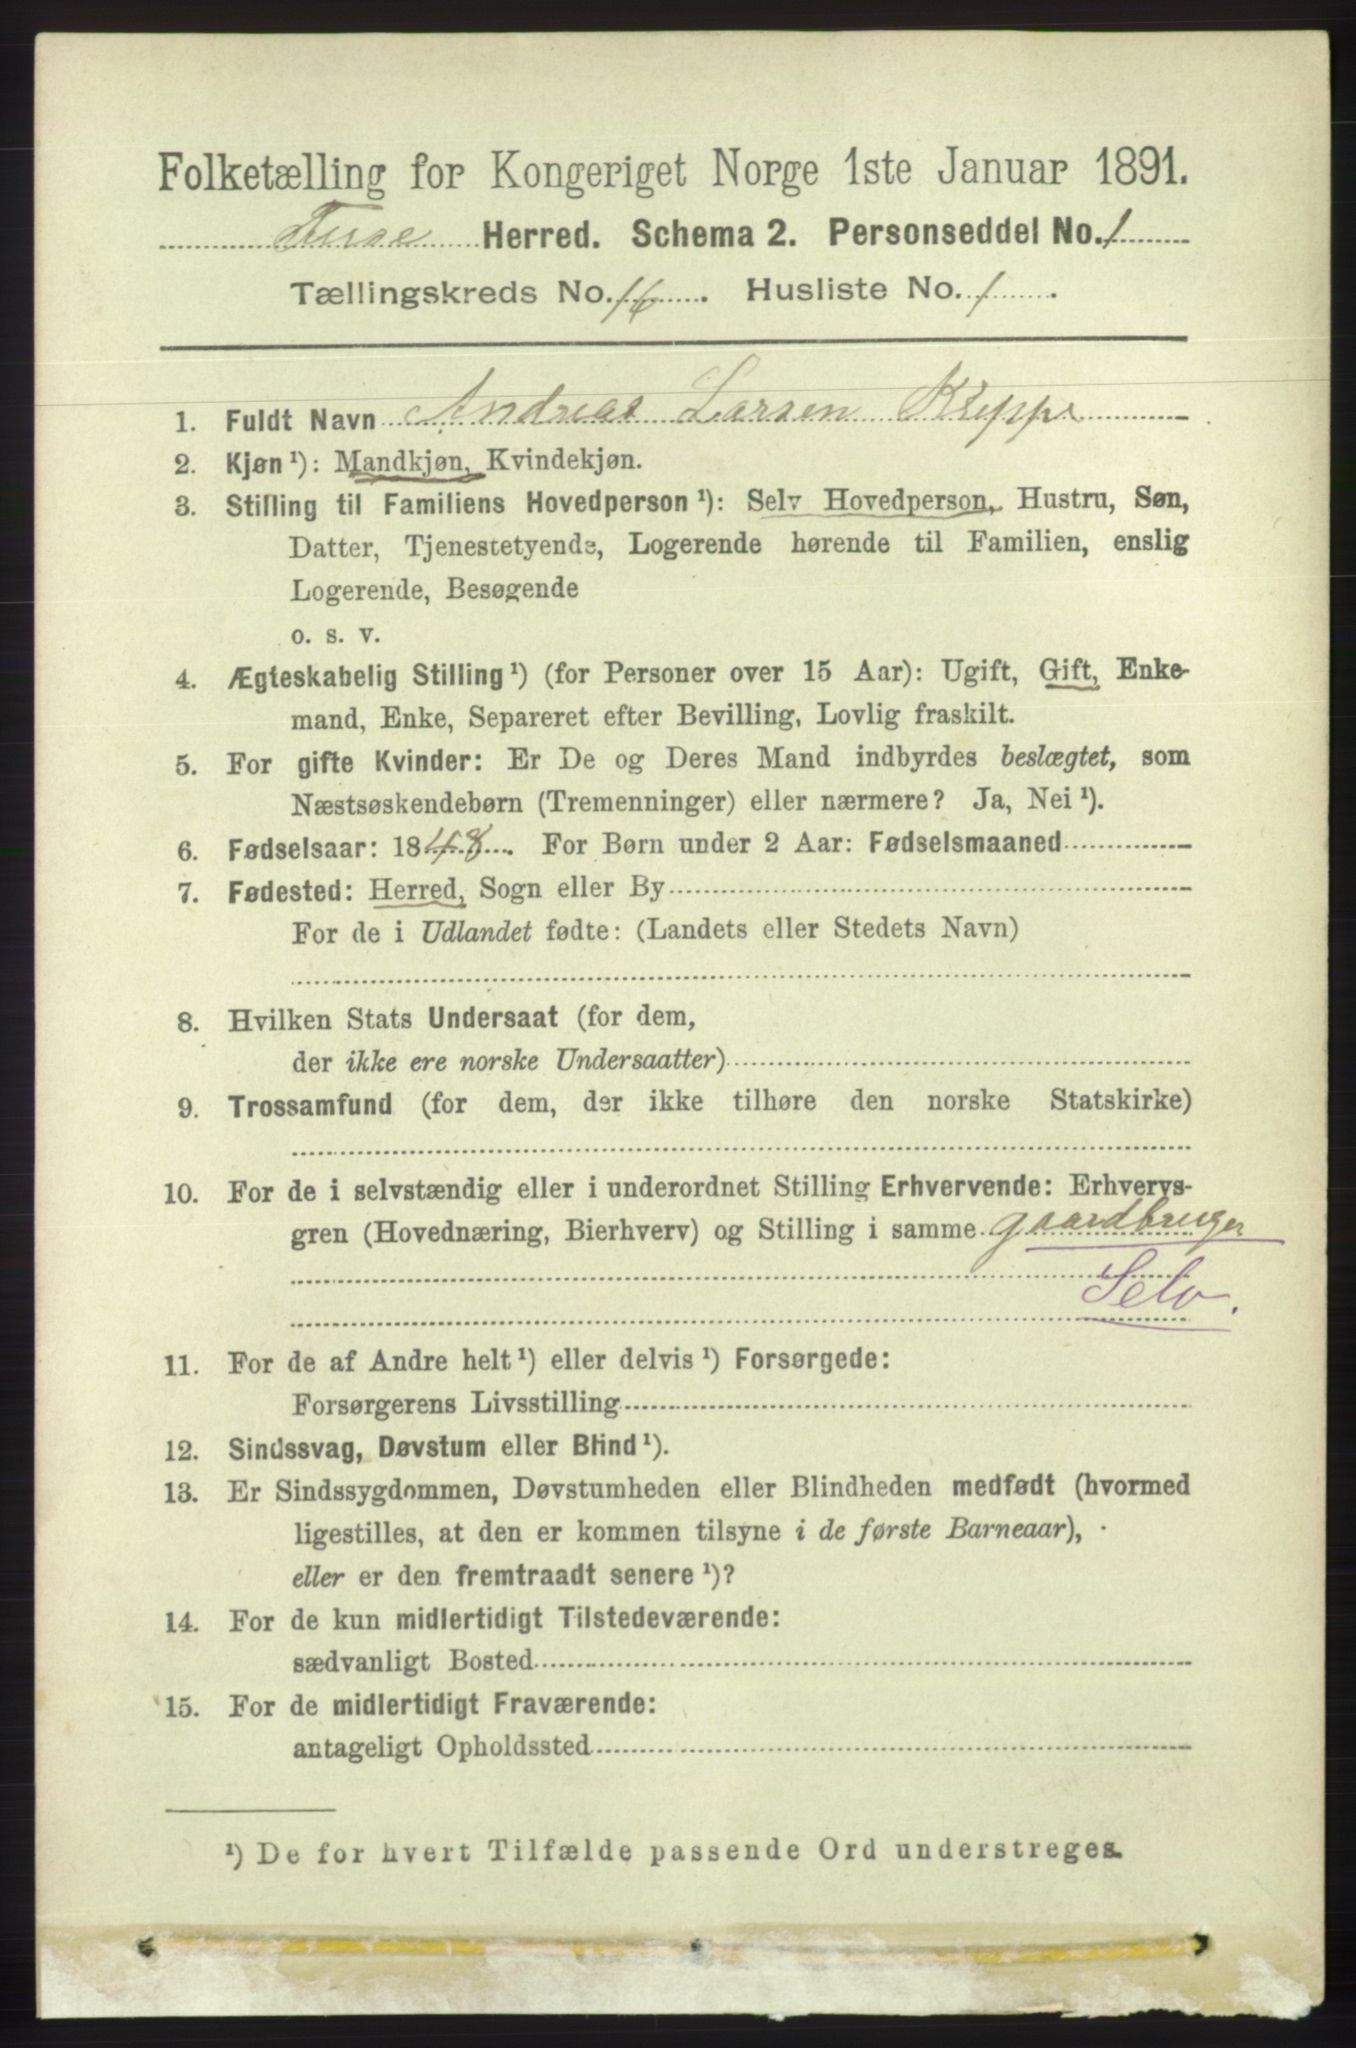 Folketælling for Kongeriget Norge 1ste Januar 1891.
Fuse Herred. Schema 2. Personseddel No. 1
Tællingskreds No. 16. Husliste No. 1.
1. Fuldt Navn Andreas Larsen Kleppe
2. Kjøn¹): Mandkjøn, Kvindekjøn.
3. Stilling til Familiens Hovedperson¹): Selv Hovedperson, Hustru, Søn,
Datter, Tjenestetyende, Logerende hørende til Familien, enslig
Logerende, Besøgende
o. s. v.
4. Ægteskabelig Stilling¹) (for Personer over 15 Aar): Ugift, Gift, Enke-
mand, Enke, Separeret efter Bevilling, Lovlig fraskilt.
5. For gifte Kvinder: Er De og Deres Mand indbyrdes beslægtet, som
Næstsøskendebørn (Tremenninger) eller nærmere? Ja, Nei¹).
6. Fødselsaar: 1848. For Børn under 2 Aar: Fødselsmaaned
7. Fødested: Herred, Sogn eller By
For de i Udlandet fødte: (Landets eller Stedets Navn)
8. Hvilken Stats Undersaat (for dem,
der ikke ere norske Undersaatter)
9. Trossamfund (for dem, der ikke tilhøre den norske Statskirke)
10. For de i selvstændig eller i underordnet Stilling Erhvervende: Erhvervs-
gren (Hovednæring, Bierhverv) og Stilling i samme gaardbruger
Selv.
11. For de af Andre helt¹) eller delvis¹) Forsørgede:
Forsørgerens Livsstilling
12. Sindssvag, Døvstum eller Blind¹).
13. Er Sindssygdommen, Døvstumheden eller Blindheden medfødt (hvormed
ligestilles, at den er kommen tilsyne i de første Barneaar),
eller er den fremtraadt senere¹)?
14. For de kun midlertidigt Tilstedeværende:
sædvanligt Bosted
15. For de midlertidigt Fraværende:
antageligt Opholdssted
¹) De for hvert Tilfælde passende Ord understreges.